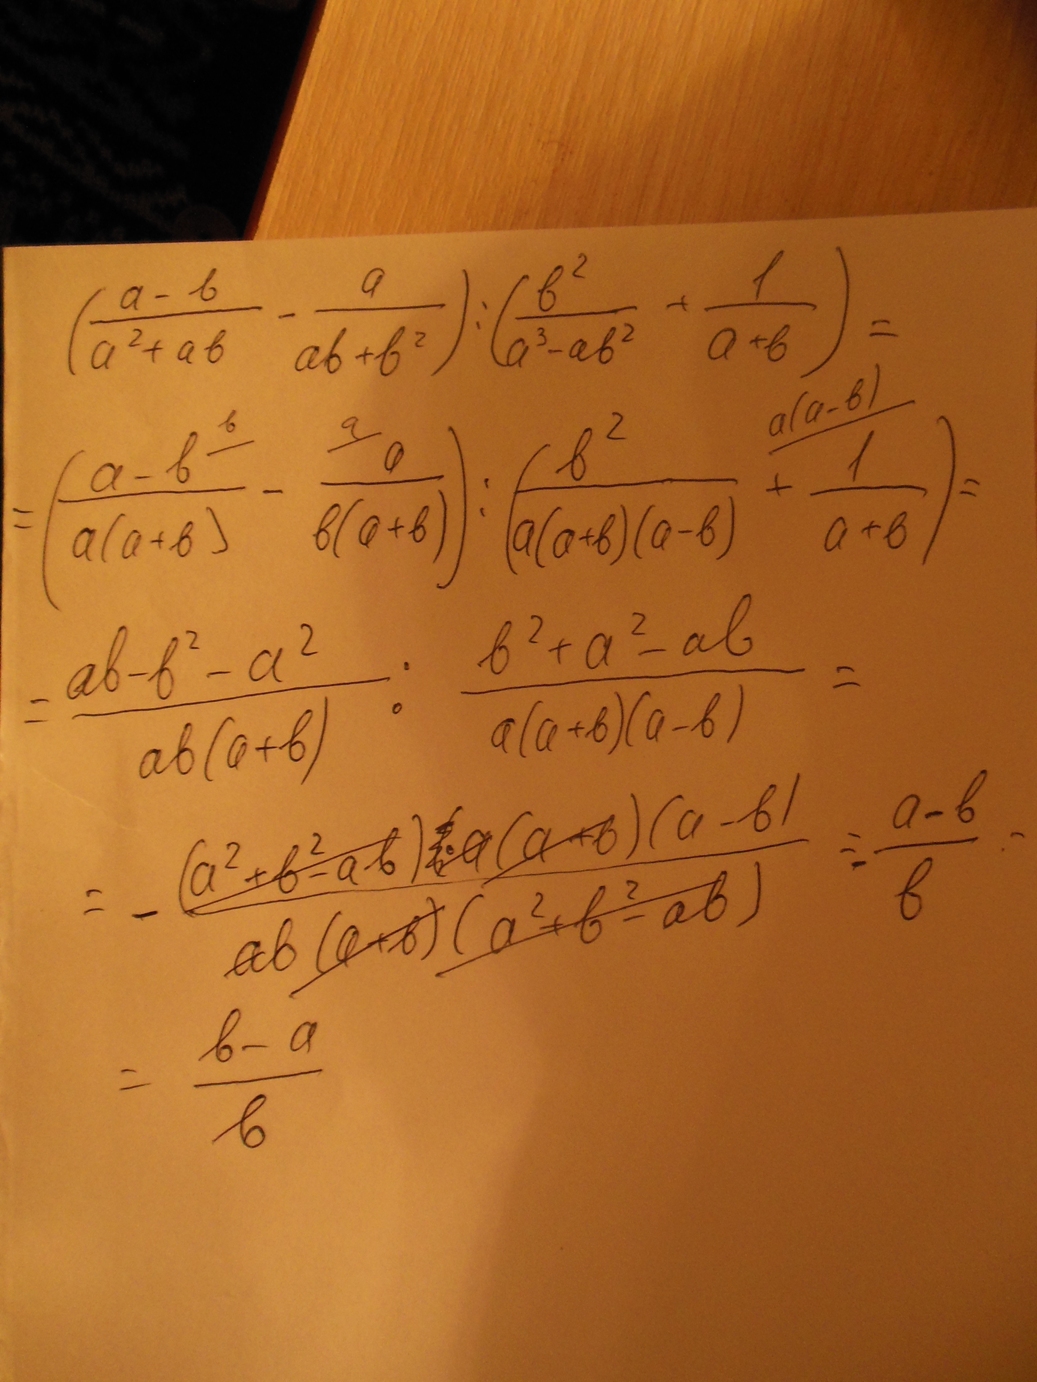 (a-b/a²+ab - a/ab+b²):(b²/a³-ab² + 1/a+b)=
=(a-b^b/a(a+b) - ^a a/b(a+b)):(b²/a(a+b)(a-b) + ^a(a-b) 1/a+b)=
=ab-b²-a²/ab(a+b) : b²+a²-ab/a(a+b)(a-b) =
= - (a²+b²-ab)·a(a+b)(a-b)/ab(a+b)(a²+b²-ab) = - a-b/b =
= b-a/b